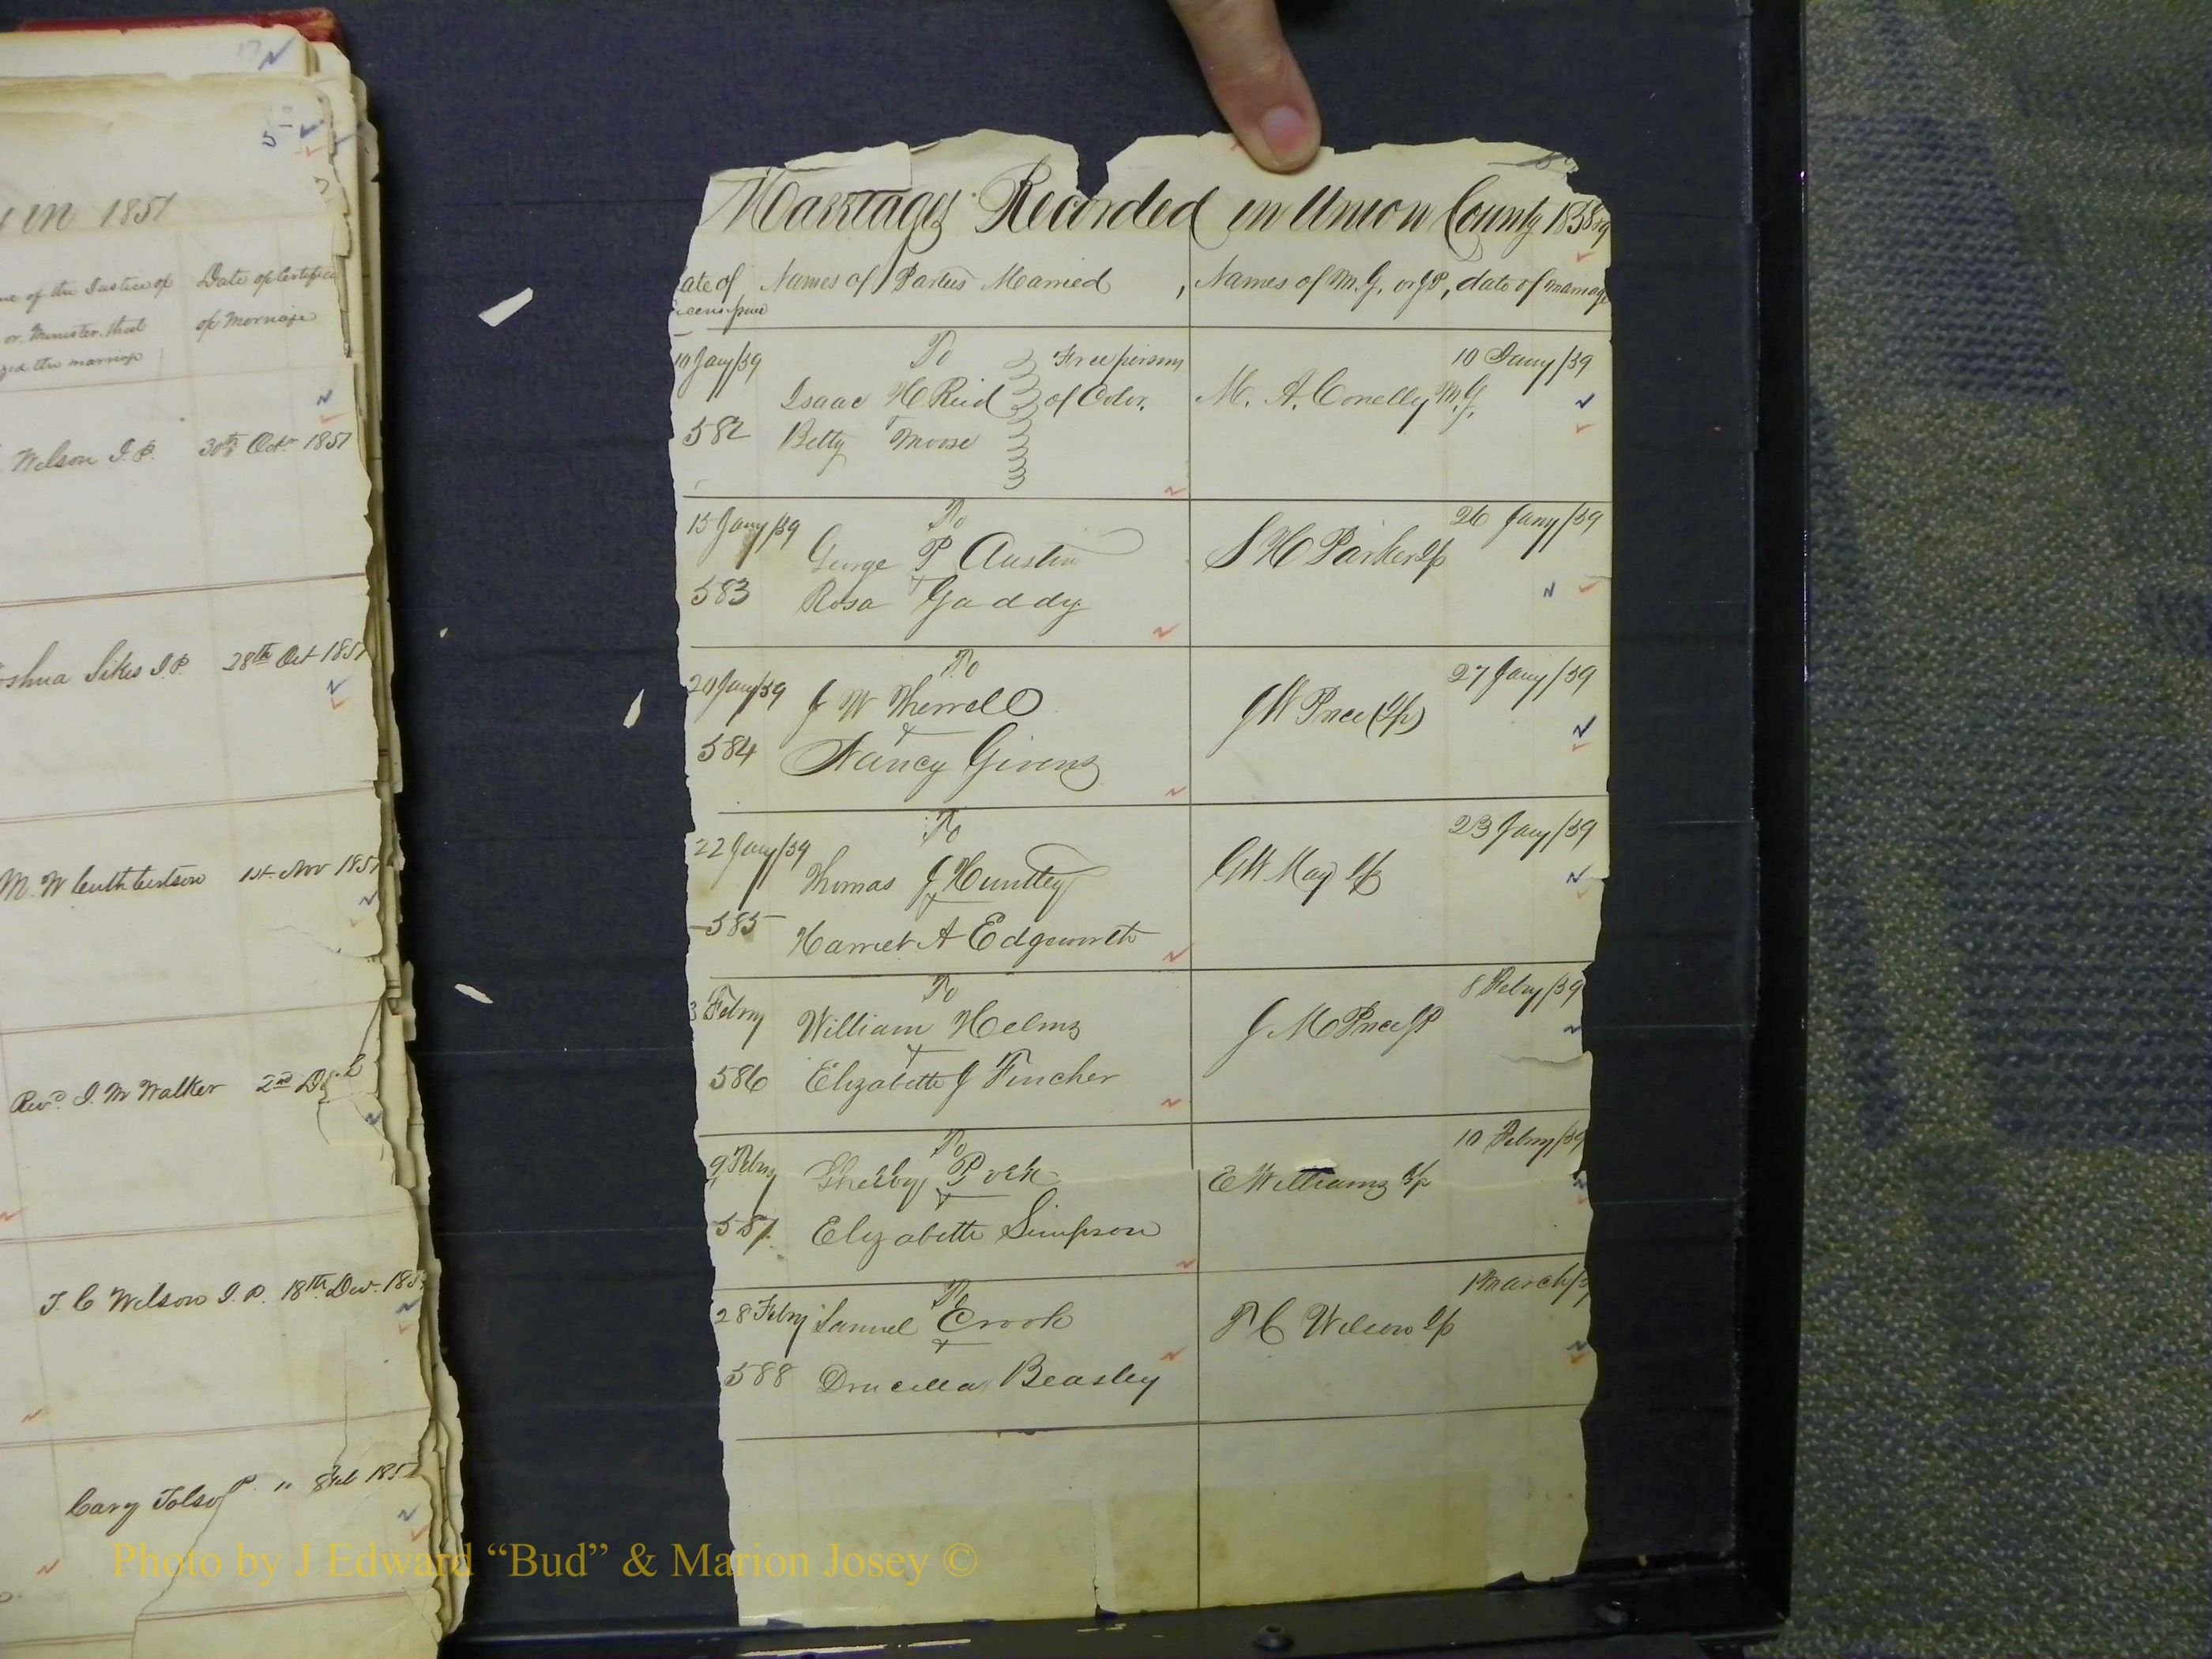 17
5
in 1851
me of the Justice of Date of Certifica
or Minister that of Marriage
zed the marriage
Wilson J.P. 30th Octr 1851
oshua Sikes J.P. 28th Oct 1851
M. W Cuthbertson 1st Nov 1851
Revd. J. M Walker 2nd
J. C Wilson J.P. 18th Dec. 185
Cary Tolso P. " 8 Feb 185
Marriages Recorded in Union County 1858
ate of Names of Parties Married , Names of M.G. or JP, date of marriage
icens
10 Jany/59 To Free persons 10 Jany/59
Isaac H Reid of Color. M. A. Conelly M.G.
582 Betty Moose
15 Jany/59 To 26 Jany/59
George P Austin S H Parker Jp
583 Rosa Gaddy
20 Jany/59 To 27 Jany/59
J W Therrell J W Price (Jp)
584 Nancy Givens
22 Jany/59 To 23 Jany/59
Thomas J Huntley G W May Jp
585 Harriet A Edgeworth
3 Febry To 8 Feby/59
William Helms J M Price JP
&
586 Elizabeth J Fincher
9 Febry To 10 Febry/59
Shelby Polk E Williams Jp
&
587 Elizabeth Simpson
28 Febry To 1 March/5
Samuel Crook T C Wilson Jp
&
588 Drucilla Beasley
Photo by J Edward “Bud” & Marion Josey ©